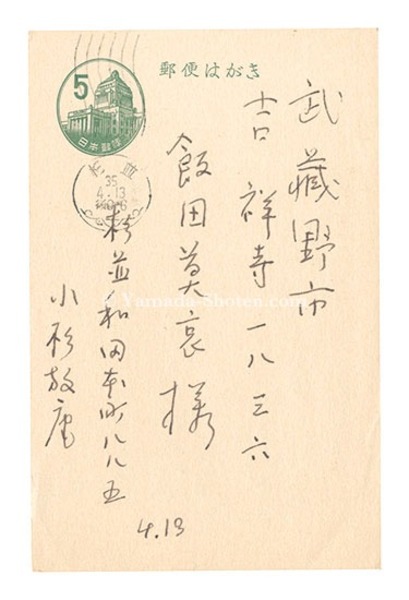 郵便はがき
5
日本郵便
杉並
35
4.13
武藏野市
吉祥寺一八三六
飯田莫哀様
杉並和田本町八八五
小杉放庵
4.13
© Yamada-Shoten.com